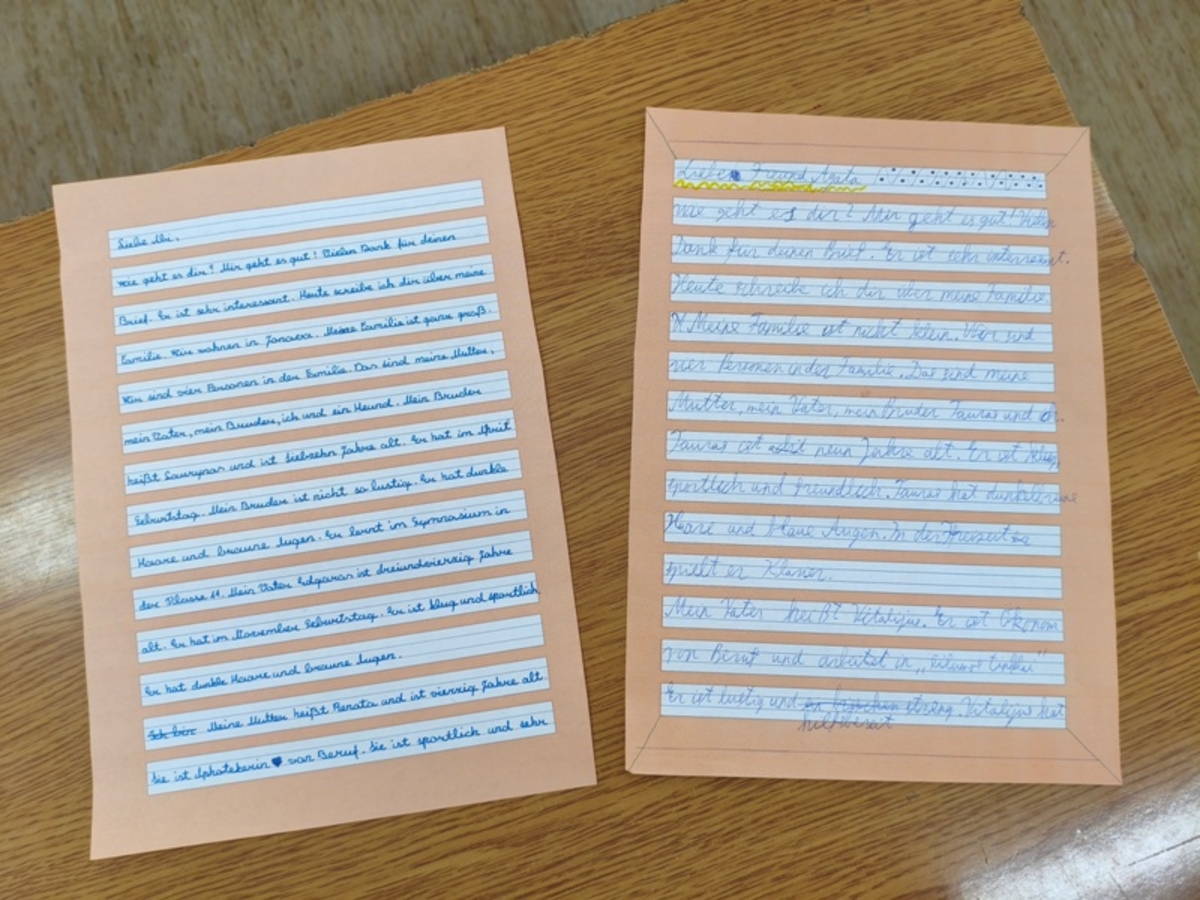 Liebe Mi,
wie geht es dir? Mir geht es gut! Vielen Dank für deinen
Brief. Er ist sehr interessant. Heute screibe ich dir über meine
Familie. Wir wohnen in Janava. Meine Familie ist ganz groß.
Wir sind vier Personen in der Familie. Das sind meine Mutter,
mein Vater, mein Bruder, ich und ein Hund. Mein Bruder
heißt Laurynas und ist siebzehn Jahre alt. Er hat im
Geburtstag. Mein Bruder ist nicht so lustig. Er hat dunkle
Haare und braune Augen. Er lernt im Gymnasium in
der Klasse 11. Mein Vater Edgaras ist dreiundvierzig Jahre
alt. Er hat im November Geburtstag. Er ist klug und sportlich
Er hat dunkle Haare und braune Augen.
Ich bin Meine Mutter heißt Renata und ist vierzig Jahre alt.
Sie ist Aphotekerin von Beruf. Sie ist sportlich und sehr
Lieber Freund
wie geht es dir? Mir geht es gut! Vielen
Dank für deinen Brief. Er ist sehr interresant.
Heute schreibe ich dir über meine Familie.
Meine Familie ist nicht klein. Wir sind
vier Personen in der Familie. Das sind meine
Mutter, mein Vater, mein Bruder Tauras und ich.
Tauras ist neun Jahre alt. Er ist klug,
sportlich und freundlich. Tauras hat dunkelbraune
Haare und blaue Augen. In der Freizeit
spielt er Klavier.
Mein Vater heißt Vitalijus. Er ist Ökonom
von Beruf und arbeitet in
Er ist lustig und ein bisschen streng. Vitalijus hat
hilfsbereit